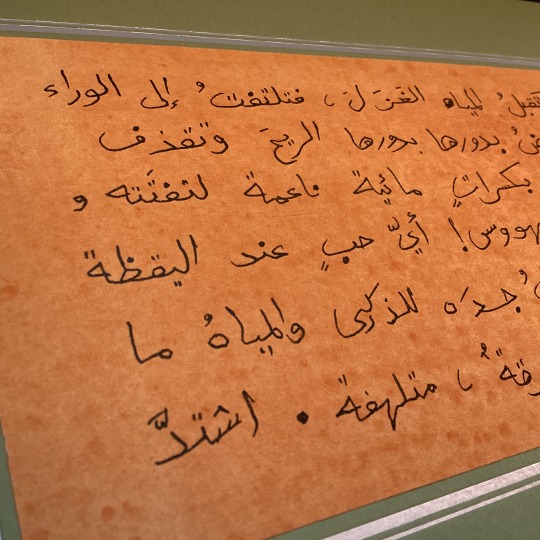 المياه الغزل، فتلتفتُ إلى الوراء
بدورها بدورها الريحَ وتقذف
بكراتٍ مائية ناعمة لتفتنه و
أيّ حبٍ عند اليقظة
للذكرى والمياهُ ما
، متلهفة . اشتدَّ